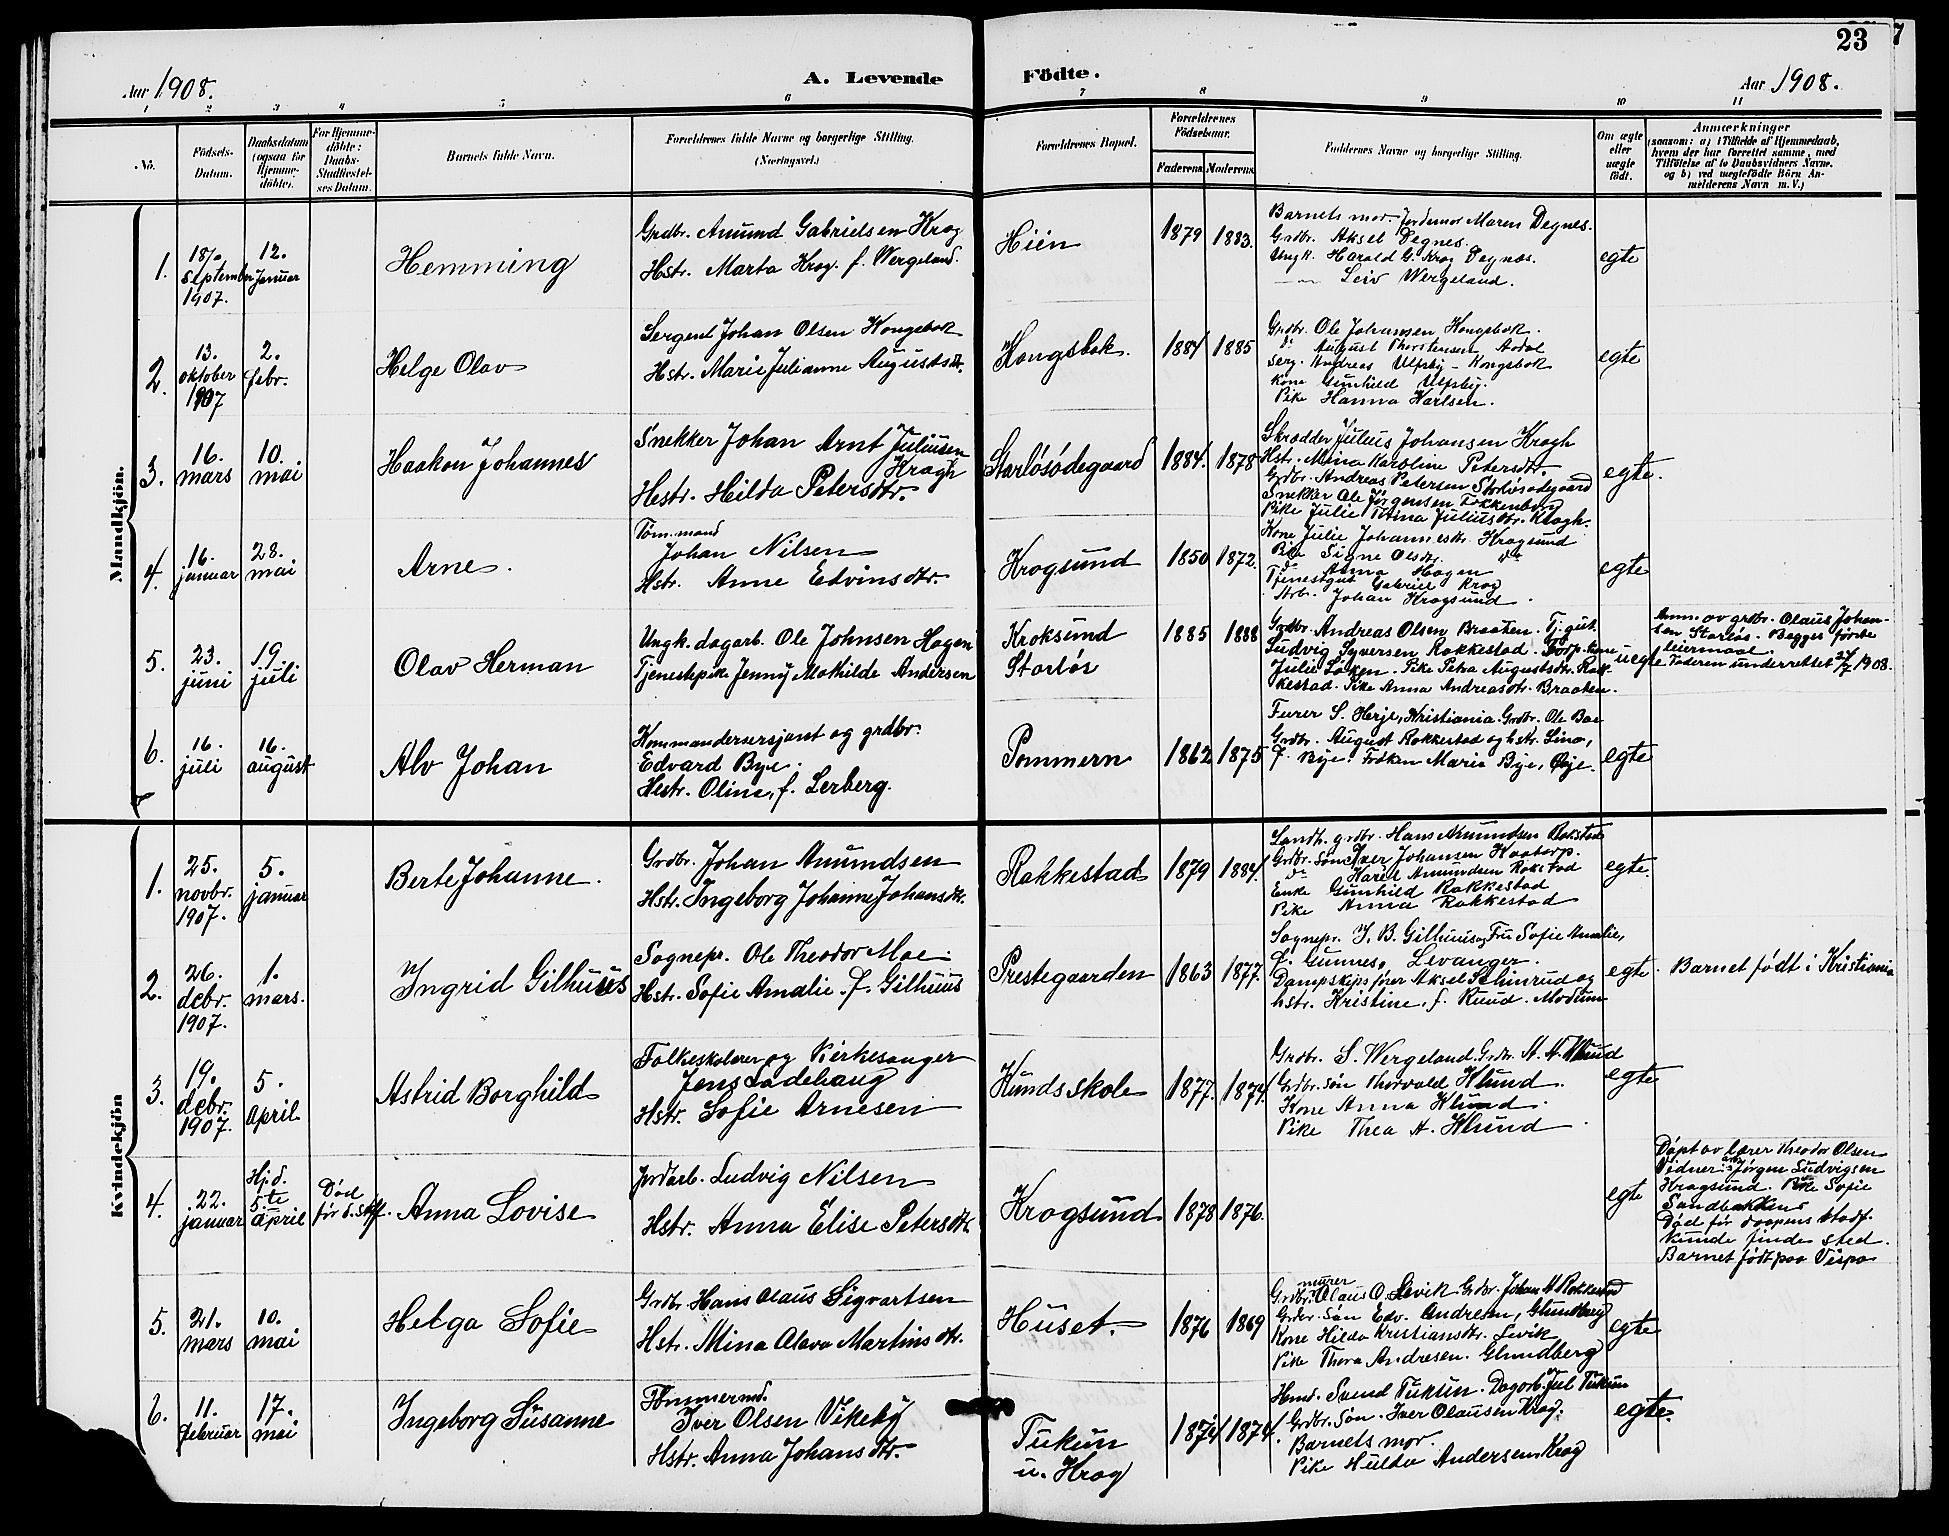 23
Aar 1908.
A. Levende Födte.
Aar 1908.
1 2 3 4 5 6 7 8 9 10 11
No.
Födsels-
Datum.
Daabsdatum
(ogsaa for
Hjemme-
döbte).
For Hjemme-
döbte:
Daabs-
Stadfæstel-
ses Datum.
Barnets fulde Navn.
Forældrenes fulde Navne og borgerlige Stilling.
(Næringsvei.)
Forældrenes Bopæl.
Forældrenes
Födselsaar.
Faderens. Moderens.
Faddernes Navne og borgerlige Stilling.
Om ægte
eller
uægte
födt.
Anmærkninger
(saasom: a) i Tilfælde af Hjemmedaab,
hvem der har forrettet samme, med
Tilföielse af to Daabsvidners Navne.
og b) ved uægtefödte Börn An-
melderens Navn m. V.)
Mandkjön.
1.
18/.
September
1907.
12.
Januar
Hemming
Grdbr. Amund Gabrielsen Krog
Hstr. Marta Krog. f. Wergeland.
Hien
1879 1883.
Barnets mor. Jordemor Maren Degnes.
Grdbr. Aksel Degnes.
Ungk. Harald G. Krog Degnæs.
Leiv Wergeland.
egte
2.
13.
oktober
1907
2.
febr.
Helge Olav
Sergent Johan Olsen Kongsbok
Hstr. Marie Julianne Augustsdtr.
Kongsbok.
1884 1885
Grdbr. Ole Johansen Kongsbok.
do August Thorstensen Aadal
Serg. Andreas Ulfsby - Kongsbok
Kone Gunhild Ulfsby.
Pike Hanna Karlsen.
egte
3.
16.
mars
10.
mai
Haakon Johannes
Snekker Johan Arnt Juliusen
Kragh
Hestr. Hilda Petersdtr.
Storløsødegaard
1884. 1878
Skrædder Julius Johansen Krogh
Hst. Mina Karoline Petersdtr.
Grdbr. Andreas Petersen Storløsødegaard
Snekker Ole Jørgensen Fokkenborg
Pike Julie Thina Juliusdtr. Kragh.
egte.
4.
16.
januar
28.
mai
Arne.
Tøm.mand
Johan Nilsen
Hstr. Anne Edvinsdtr.
Krogsund
1850 1872.
Kone Julie Johannesdtr. Krogsund
Pike Signe Olsdtr. do
do Anna Hagen
Tjenestgut Gabriel Krog
Arb. Johan Krogsund
egte
5.
23.
juni
19.
juli
Olav Herman
Ungk. dagarb. Ole Johnsen Hagen
Tjenestepike Jenny Mathilde Andersen
Kroksund
Storløs
1885 1888
Grdbr. Andreas Olsen Braaten. Tj.gut.
Ludvig Syversen Rakkestad. Forp.kone
Julie Løken. Pike Petra Augustsdtr. Rak-
kestad. Pike Anna Andreasdtr. Braaten.
uegte
Anm. av grdbr. Olaus Johan-
sen Storløs. Begges første
leiermaal.
Faderen underrettet 24/7 1908.
6.
16.
juli
16.
august
Alv Johan
Kommandersersjant og grdbr.
Edvard Bye.
Hestr. Oline, f. Lerberg.
Pommern
1862 1875
Furer S. Herje, Kristiania. Grdbr. Ole Bae
Grdbr. August Rakkestad og hstr. Lina,
f. Bye. Frøken Marie Bye, Øye.
egte
Kvindekjön
1.
25.
novbr.
1907.
5.
januar
Berte Johanne.
Grdbr. Johan Amundsen
Hstr. Ingeborg Johanne Johansdtr.
Rakkestad
1879 1884.
Landh. grdbr. Hans Amundsen Rakstad
Grdbr. søn Iver Johansen Haatorp.
do Karel Amundsen Rakstad
Enke Gunhild Rakkestad
Pike Anna Rakkestad
egte.
2.
26.
debr.
1907.
1.
mars.
Ingrid Gilhuus
Sognepr. Ole Theodor Moe.
Hstr. Sofie Amalie. f. Gilhuus
Prestegaarden
1863 1877.
Sognepr. J. B. Gilhuus og Fru Sofie Amalie,
f. Gunnes, Levanger.
Dampskipsfører Aksel Schinrud og
hstr. Kristine, f. Ruud. Modum
egte.
Barnet født i Kristiania
3.
19.
debr.
1907.
5.
april
Astrid Borghild
Folkeskolærer og Kirkesanger
Jens Ladehaug
Hstr. Sofie Arnesen
Kunds skole
1877. 1874.
Grdbr. S. Wergeland. Grdbr. A. A. Klund
Grdbr. søn Thorvald Klund.
Kone Anna Klund.
Pike Thea A. Klund
egte
4.
22.
januar
Hjd.
5te
april
Død
før d. stf.
Anna Lovise
Jordarb. Ludvig Nilsen
Hstr. Anna Elise Petersdtr.
Krogsund
1878 1876.
egte
Døpt av lærer Theodor Olsen
Vidner: arb. Jørgen Ludvigsen
Kragsund. Pike Sofie
Sandbakken
Død før daapens stadf.
kunde finde sted.
Barnet født paa Vispa
5.
21.
mars
10.
mai
Helga Sofie
Grdbr. Hans Olaus Sigvartsen
Hstr. Mina Olava Martinsdtr.
Huset.
1876 1869
murer
Grdbr. Olaus O. Levik. Grdbr. Johan A. Rakkestad
Grdbr. Søn Edv. Andresen, Glundberg
Kone Hilda Kristiansdtr. Levik
Pike Thora Andresen. Glundberg
egte
6.
11.
februar
17.
mai
Ingeborg Susanne
Tømmermd.
Iver Olsen Vikeby
Hstr. Anna Johansdtr.
Tukun
u. Krog
1874 1874.
Hmd. Svend Tukun. Dagarb. Jul. Tukun
Grdbr. Søn. Iver Olausen Krog.
Barnets mor.
Pike Hulda Andersen Krog
egte.